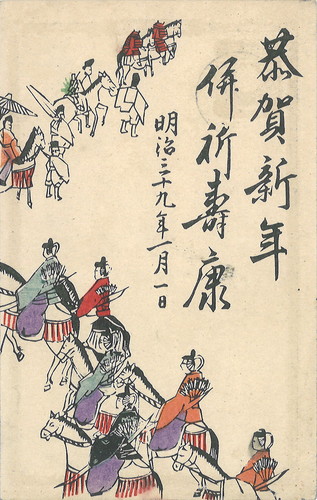 恭賀新年
併祈壽康
明治三十九年一月一日